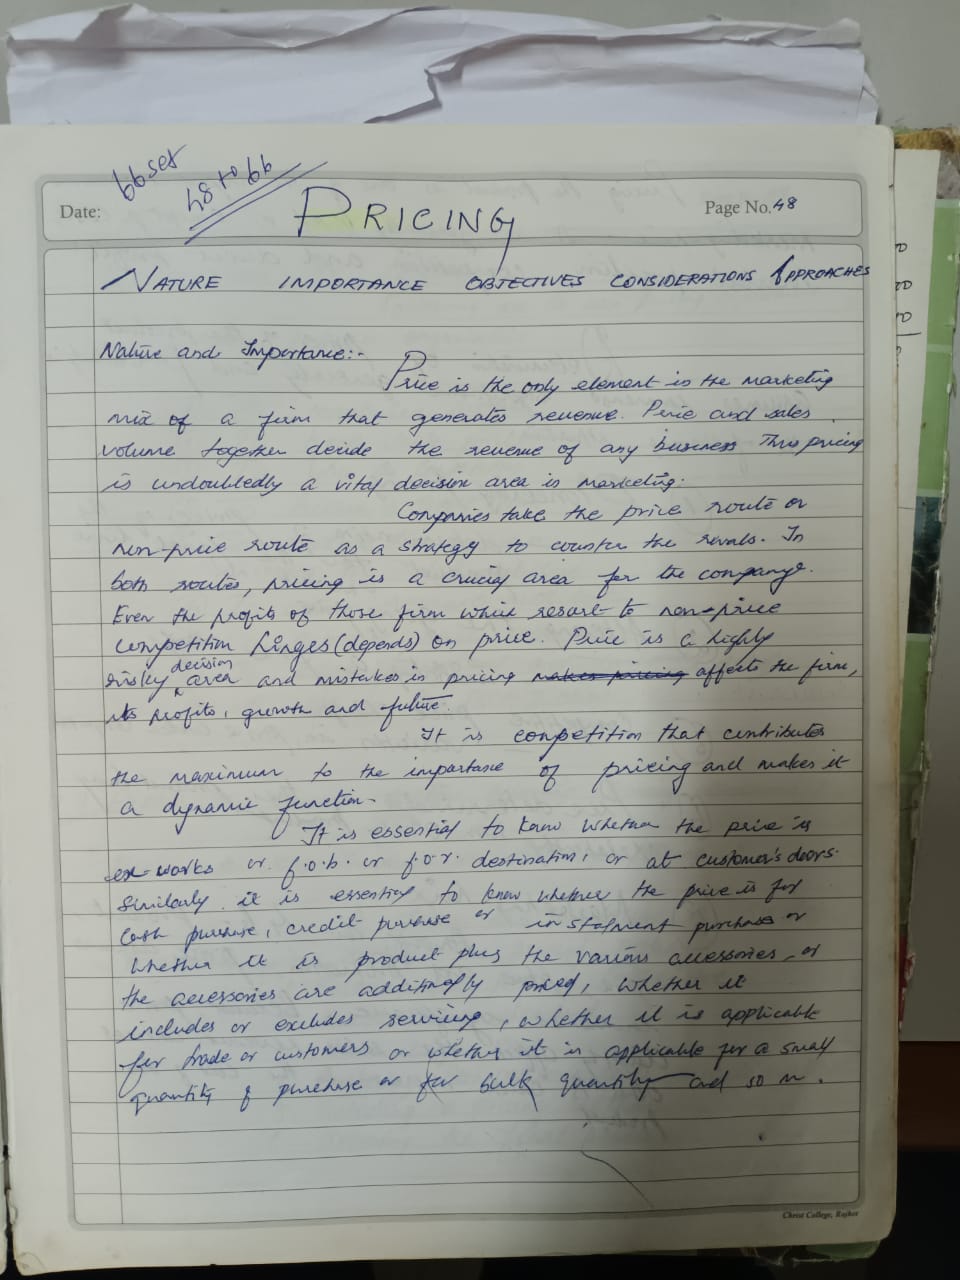 48 to 66
Date:
PRICING
Page No. 48
NATURE IMPORTANCE OBJECTIVES CONSIDERATIONS APPROACHES
Nature and Importance:-
Price is the only element in the marketing
mix of a firm that generates revenue. Price and sales
volume together decide the revenue of any business Thus pricing
is undoubtedly a vital decision area in marketing.
Companies take the price route or
non-price route as a strategy to counter the rivals. In
both routes, pricing is a crucial area for the company.
Even the profits of those firm which resort to non-price
competition hinges (depends) on price. Price is a highly
risky decision area and mistakes in pricing makes pricing affects the firm,
its profits, growth and future.
It is competition that contributes
the maximum to the importance of pricing and makes it
a dynamic function.
It is essential to know whether the price is
ex-works or f.o.b. or f.o.r. destination, or at customer's doors.
Similarly it is essential to know whether the price is for
cash purchase, credit purchase or instalment purchase or
whether it is product plus the various accessories, or
the accessories are additionally priced, whether it
includes or excludes servicing, whether it is applicable
for trade or customers or whether it is applicable for a small
quantity of purchase or for bulk quantity and so on.
Christ College, Rajkot